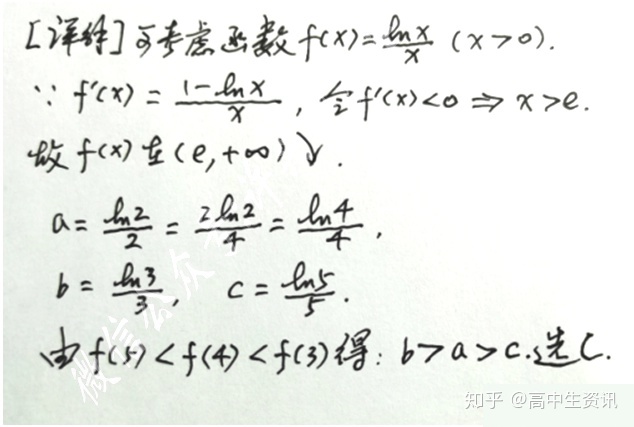 [详细] 可考虑函数 f(x)=lnx/x (x>0).
∵ f′(x)=(1-lnx)/x, 令f′(x)<0 ⇒ x>e.
故 f(x) 在 (e,+∞) ↓.
a=ln2/2=2ln2/4=ln4/4,
b=ln3/3, c=ln5/5.
由 f(5)<f(4)<f(3) 得: b>a>c. 选C.
微信公众
知乎 @高中生资讯